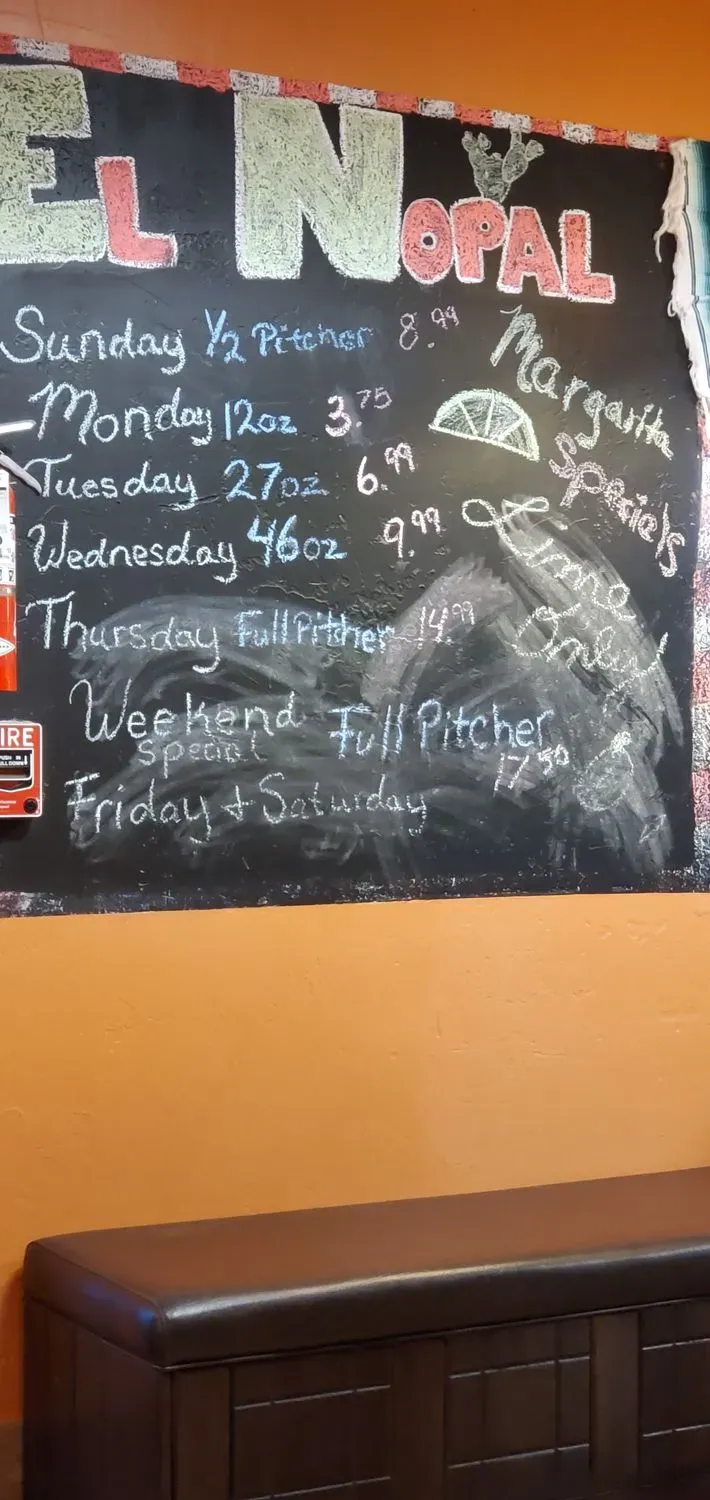 EL NOPAL
Sunday 1/2 Pitcher 8.99
Monday 12oz 3.75
Tuesday 27oz 6.99
Wednesday 46oz 9.99
Thursday Full Pitcher 14.99
Weekend Full Pitcher
Special 17.50
Friday + Saturday
Margarita
Specials
Lime
Only!
IRE